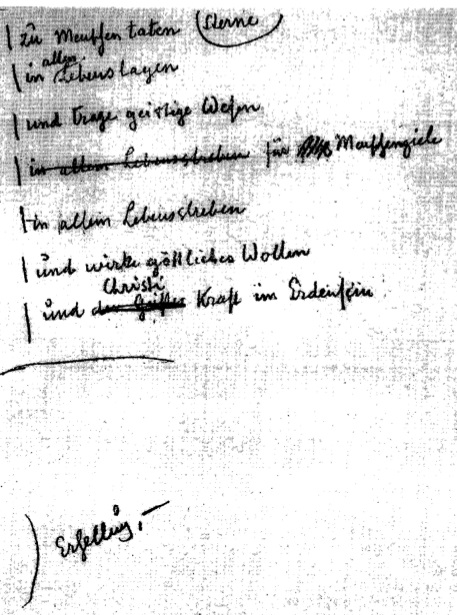 zu Menschentaten Sterne
in allen Lebenslagen
und trage geistige Wesen
in allem Lebensstreben für Menschenziele
in allem Lebensstreben
und wirke göttliches Wollen
und Christi Kraft im Erdensein